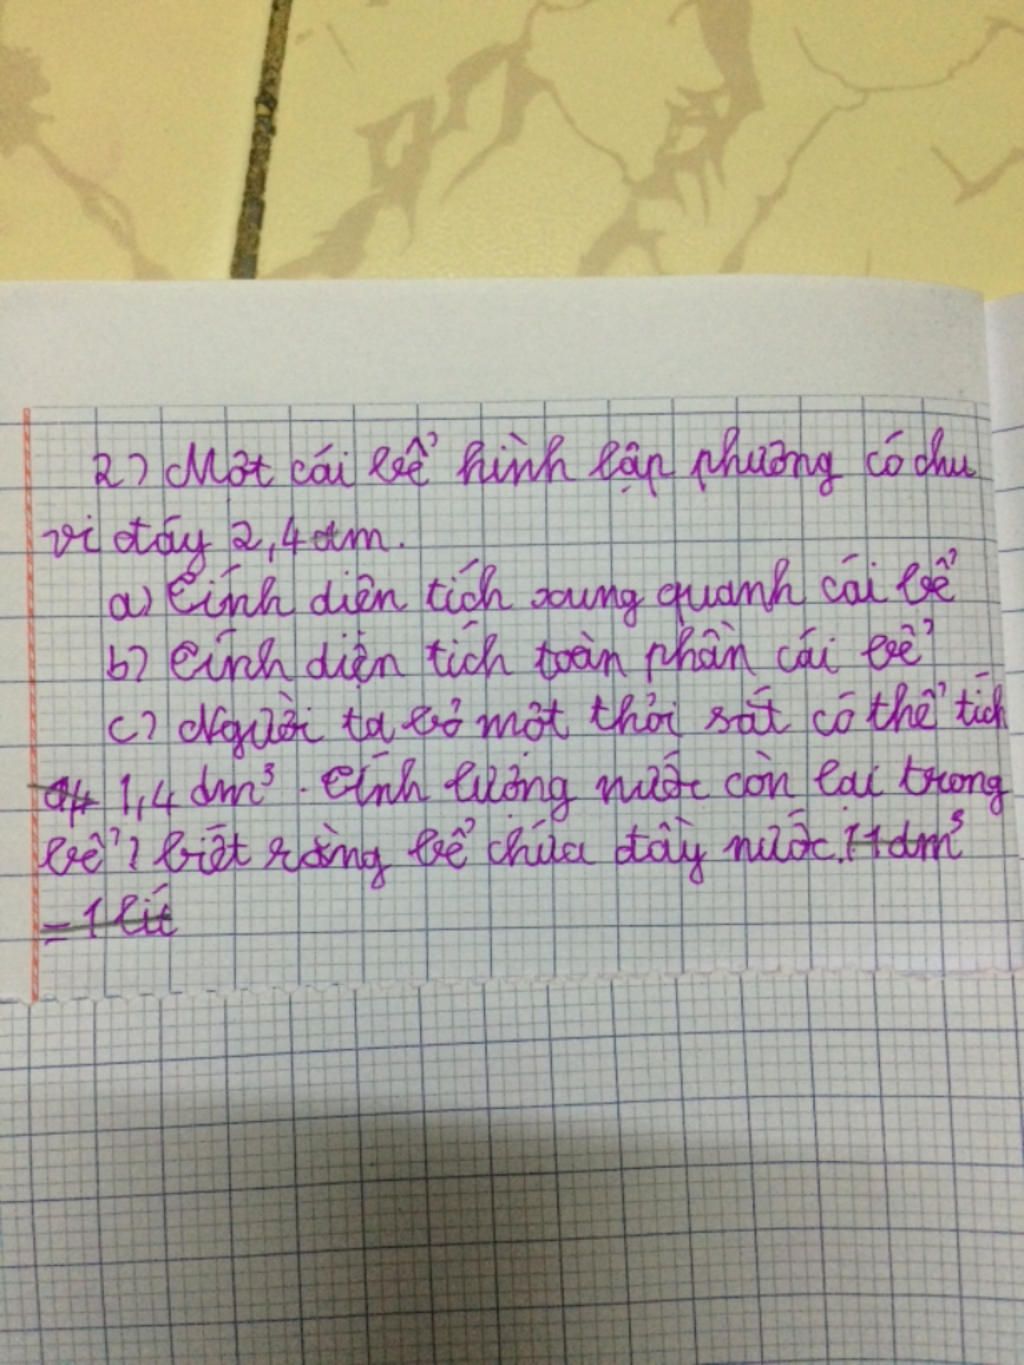 2) Một cái bể hình lập phương có chu
vi đáy 2,4dm.
a) Tính diện tích xung quanh cái bể
b) Tính diện tích toàn phần cái bể
c) Người ta bỏ một thỏi sắt có thể tích
1,4 dm³. Tính lượng nước còn lại trong
bể? biết rằng bể chứa đầy nước. 1dm³
= 1 lít